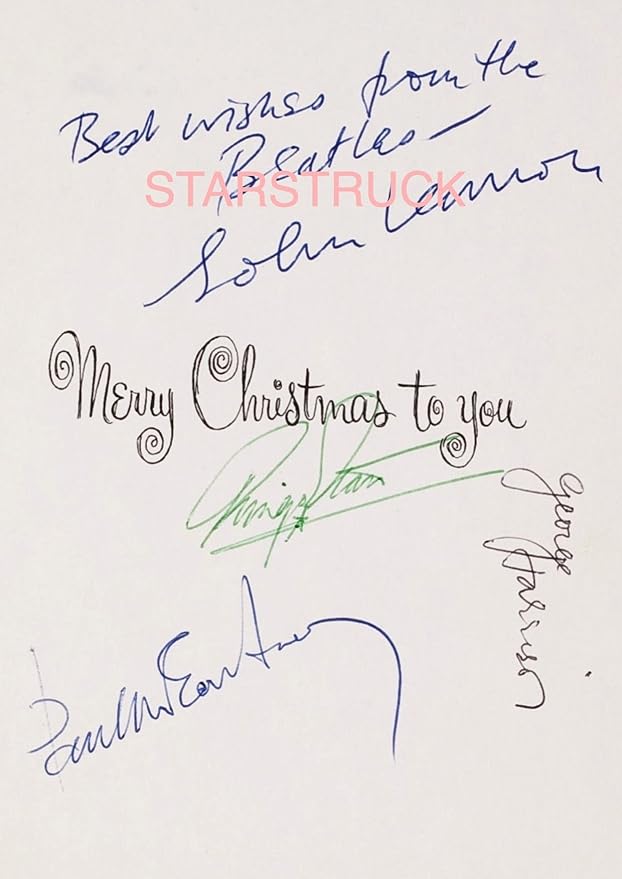 Best wishes from the
Beatles—
STARSTRUCK
John Lennon
Merry Christmas to you
Ringo Starr
George Harrison
Paul McCartney